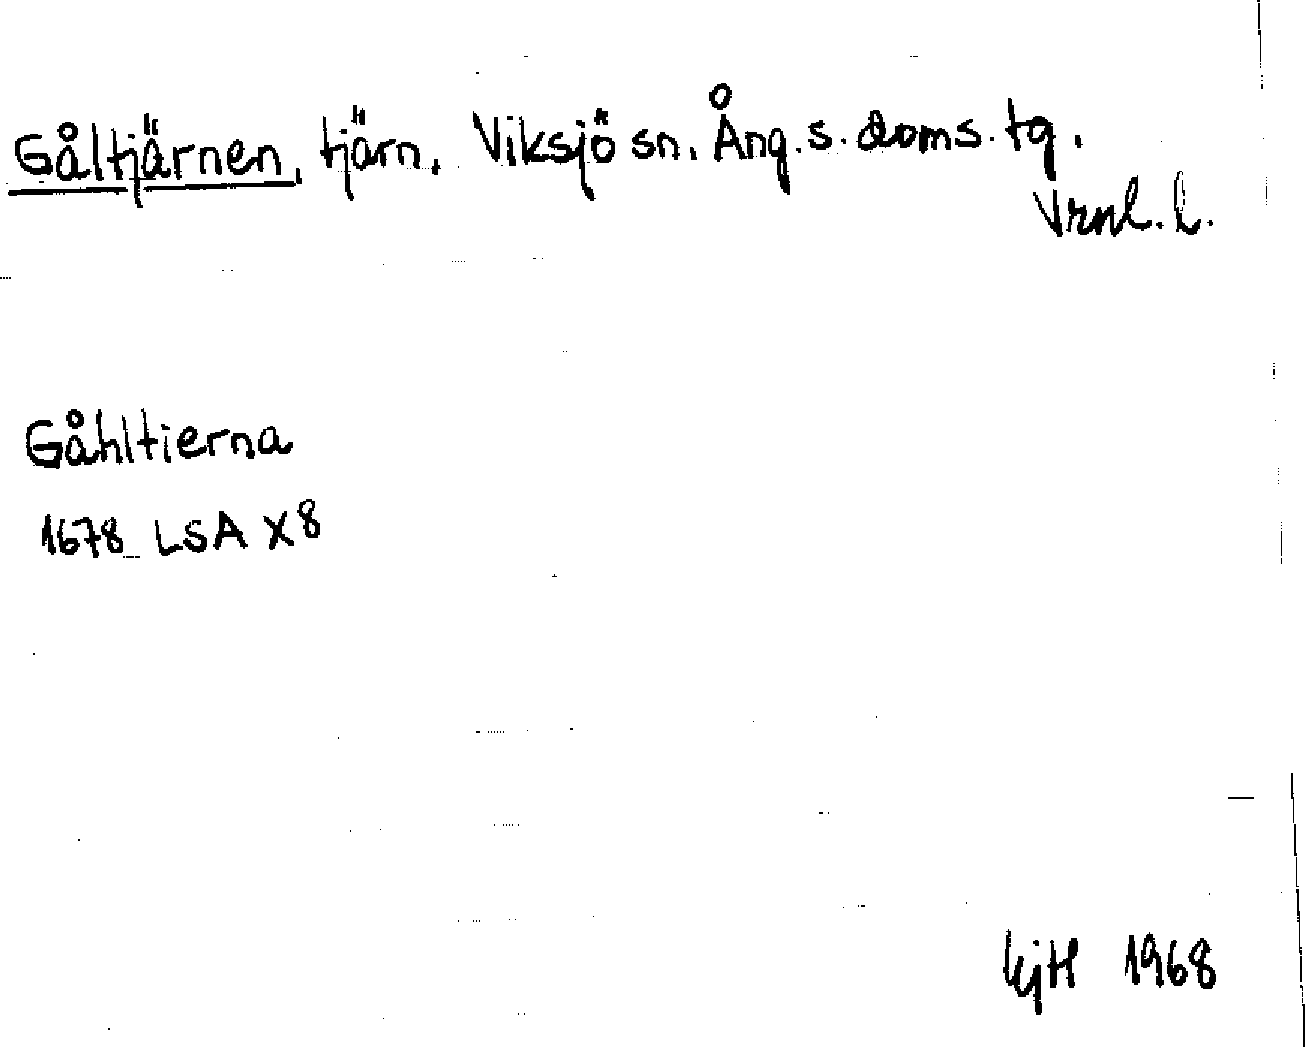 Gåltjärnen, tjärn. Viksjö sn. Ång. s. doms. tg.
Vrnl. l.
Gåhltierna
1678 LSA X8
KjH 1968